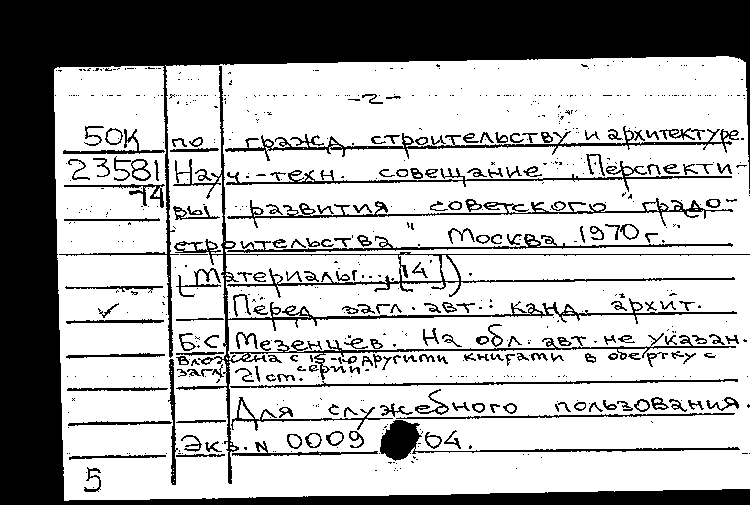 -2-
50К по гражд. строительству и архитектуре.
23581 Науч.-техн. совещание „Перспекти-
14 вы развития советского "градо-
строительства". Москва, 1970 г.
[Материалы...,[14]).
✓ Перед загл. авт.: канд. архит.
Б.С. Мезенцев. На обл. авт. не указан.
Вложена с 15-ю другими книгами в обертку с
загл. 21 ст. серии
Для служебного пользования.
Экз. N 0009 04.
5